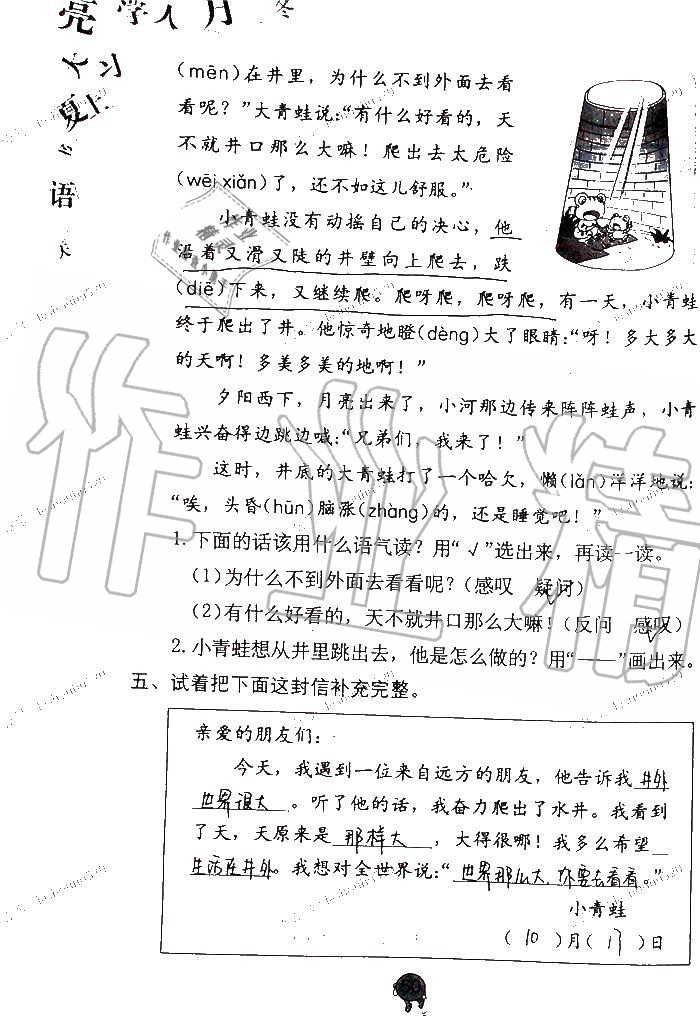 亮 学入 月 冬
夏上
语
(mēn)在井里，为什么不到外面去看
看呢？”大青蛙说：“有什么好看的，天
不就井口那么大嘛！爬出去太危险
(wēi xiǎn)了，还不如这儿舒服。”
小青蛙没有动摇自己的决心，他
沿着又滑又陡的井壁向上爬去，跌
(diē)下来，又继续爬。爬呀爬，爬呀爬，有一天，小青蛙
终于爬出了井。他惊奇地瞪(dèng)大了眼睛：“呀！多大多大
的天啊！多美多美的地啊！”
夕阳西下，月亮出来了，小河那边传来阵阵蛙声，小青
蛙兴奋得边跳边喊：“兄弟们，我来了！”
这时，井底的大青蛙打了一个哈欠，懒(lǎn)洋洋地说：
“唉，头昏(hūn)脑涨(zhàng)的，还是睡觉吧！”
1. 下面的话该用什么语气读？用“√”选出来，再读一读。
(1)为什么不到外面去看看呢？(感叹 疑问)
(2)有什么好看的，天不就井口那么大嘛！(反问 感叹)
2. 小青蛙想从井里跳出去，他是怎么做的？用“——”画出来。
五、试着把下面这封信补充完整。
亲爱的朋友们：
今天，我遇到一位来自远方的朋友，他告诉我 井外
世界很大 。听了他的话，我奋力爬出了水井。我看到
了天，天原来是 那样大 ，大得很哪！我多么希望
生活在井外。我想对全世界说：“ 世界那么大，你要去看看。”
小青蛙
(10)月(17)日
作业精